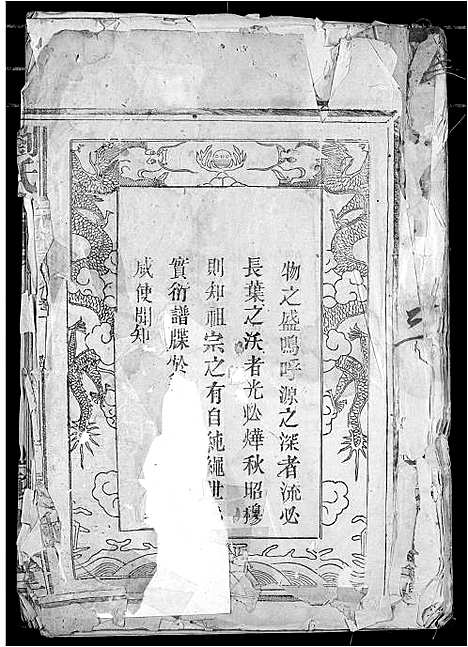 物之盛嗚呼源之深者流必
長葉之沃者光必燁秋昭穆
則知祖宗之有自純繩世
實衍譜牒於
咸使聞知
劉氏